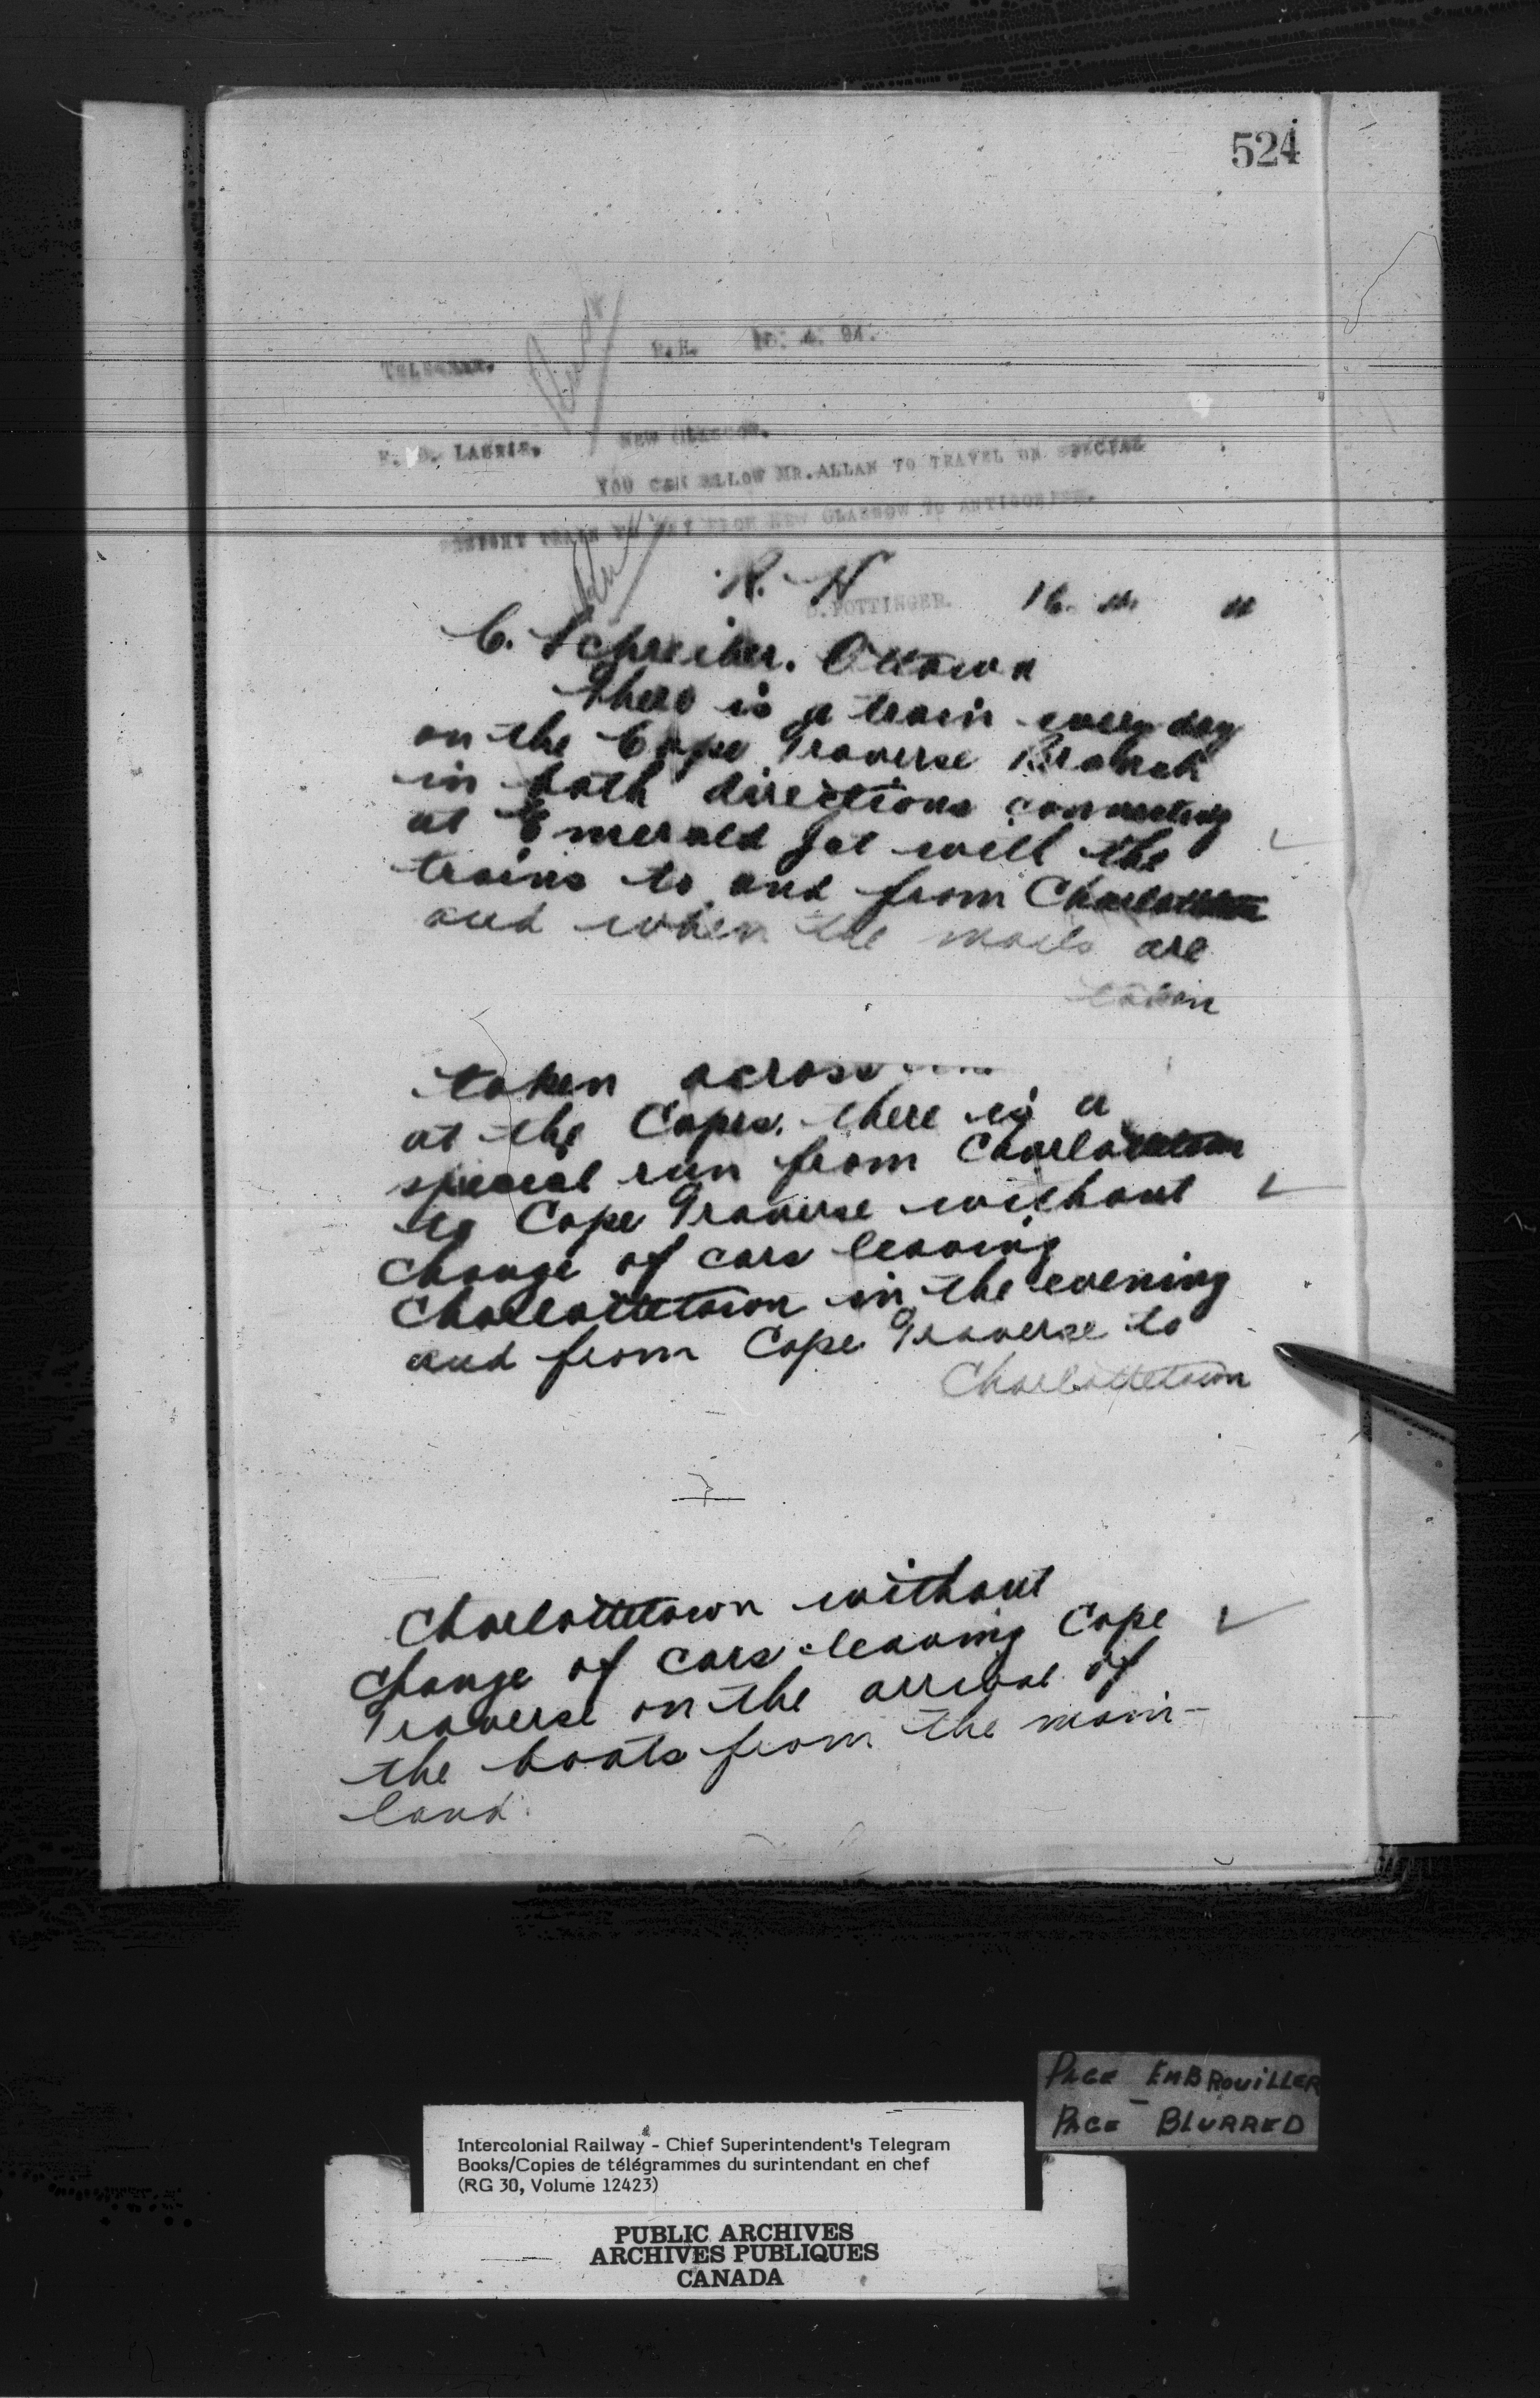 524
TELEGRAM. R.H. 4. 94.
LAURIE, NEW GLASGOW.
YOU CAN ALLOW MR. ALLAN TO TRAVEL ON SPECIAL
FREIGHT TRAIN FROM NEW GLASGOW TO ANTIGONISH.
D. POTTINGER.
R. H 16. " "
C. Schreiber. Ottawa
There is a train every day
on the Cape Traverse Branch
in both directions connecting
at Emerald Jct with the
trains to and from Charlottetown
and when the mails are
taken
taken across
at the Capes. there is a
special run from Charlottetown
to Cape Traverse without
change of cars leaving
Charlottetown in the evening
and from Cape Traverse to
Charlottetown
Charlottetown without
change of cars leaving Cape
Traverse on the arrival of
the boats from the main-
land.
PAGE EMBROUILLER
PAGE BLURRED
Intercolonial Railway - Chief Superintendent's Telegram
Books/Copies de télégrammes du surintendant en chef
(RG 30, Volume 12423)
PUBLIC ARCHIVES
ARCHIVES PUBLIQUES
CANADA